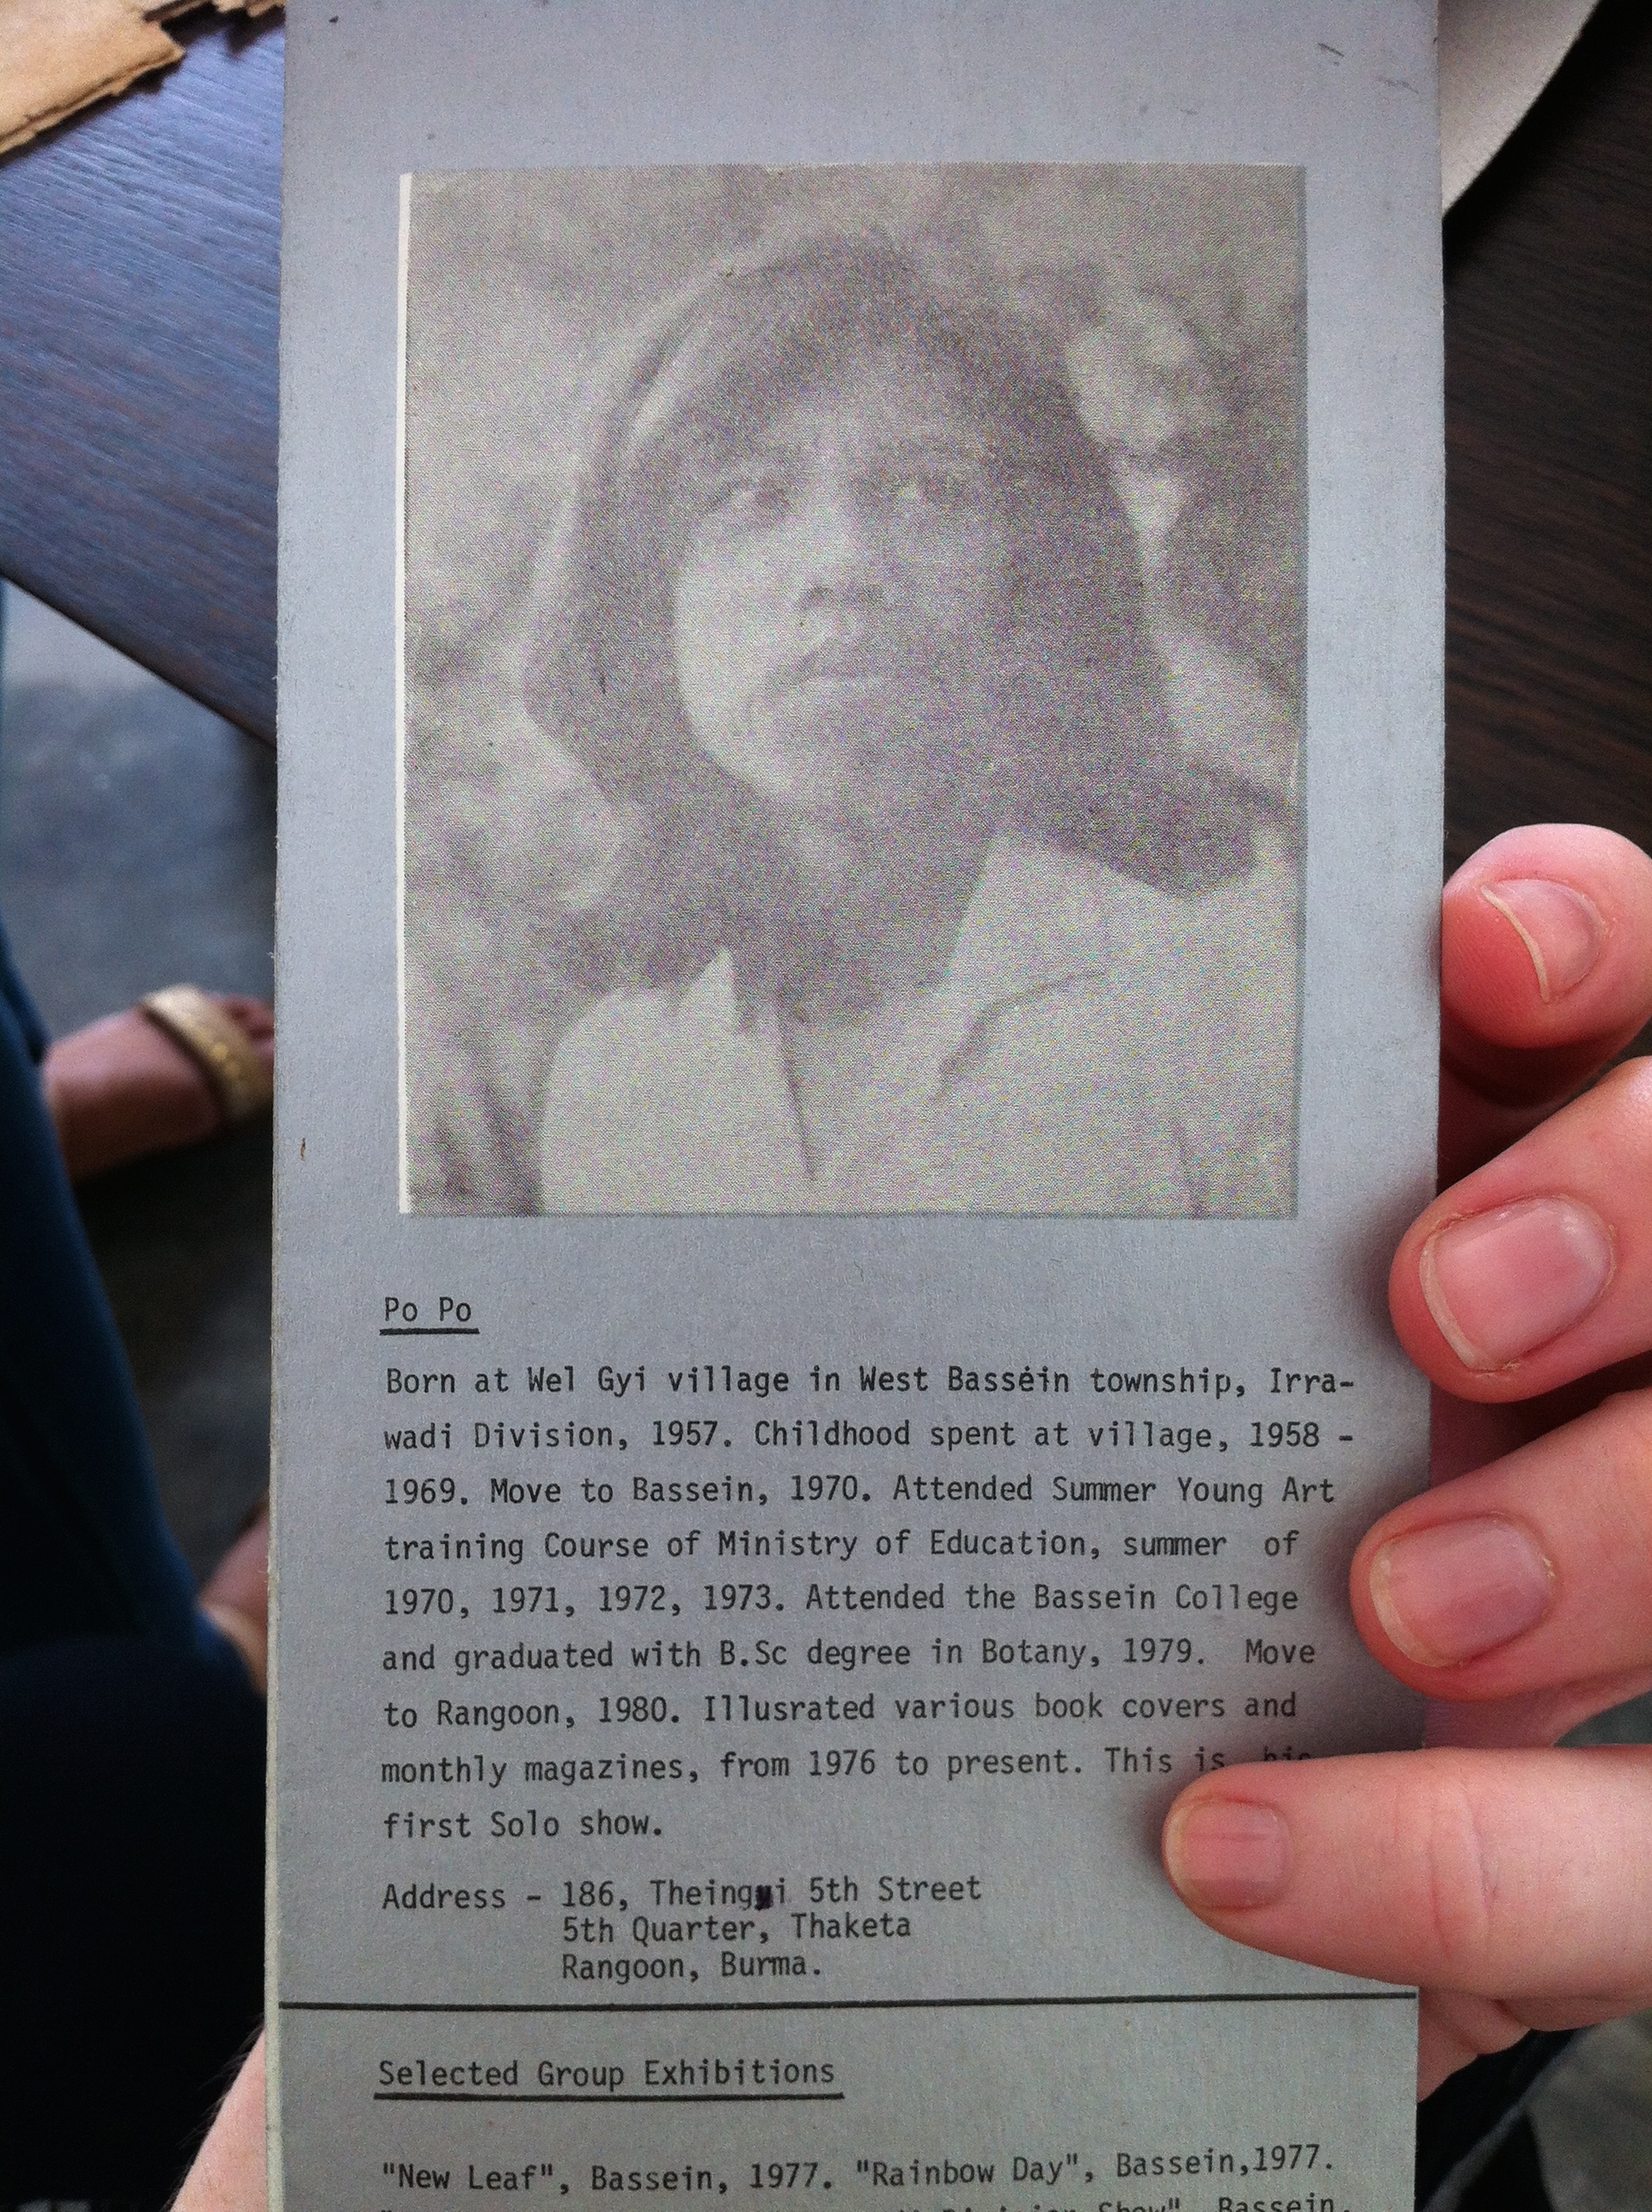 Po Po
Born at Wel Gyi village in West Bassein township, Irra-
wadi Division, 1957. Childhood spent at village, 1958 -
1969. Move to Bassein, 1970. Attended Summer Young Art
training Course of Ministry of Education, summer of
1970, 1971, 1972, 1973. Attended the Bassein College
and graduated with B.Sc degree in Botany, 1979. Move
to Rangoon, 1980. Illusrated various book covers and
monthly magazines, from 1976 to present. This is his
first Solo show.
Address - 186, Theingyi 5th Street
5th Quarter, Thaketa
Rangoon, Burma.
Selected Group Exhibitions
"New Leaf", Bassein, 1977. "Rainbow Day", Bassein,1977.
Division Show", Bassein,